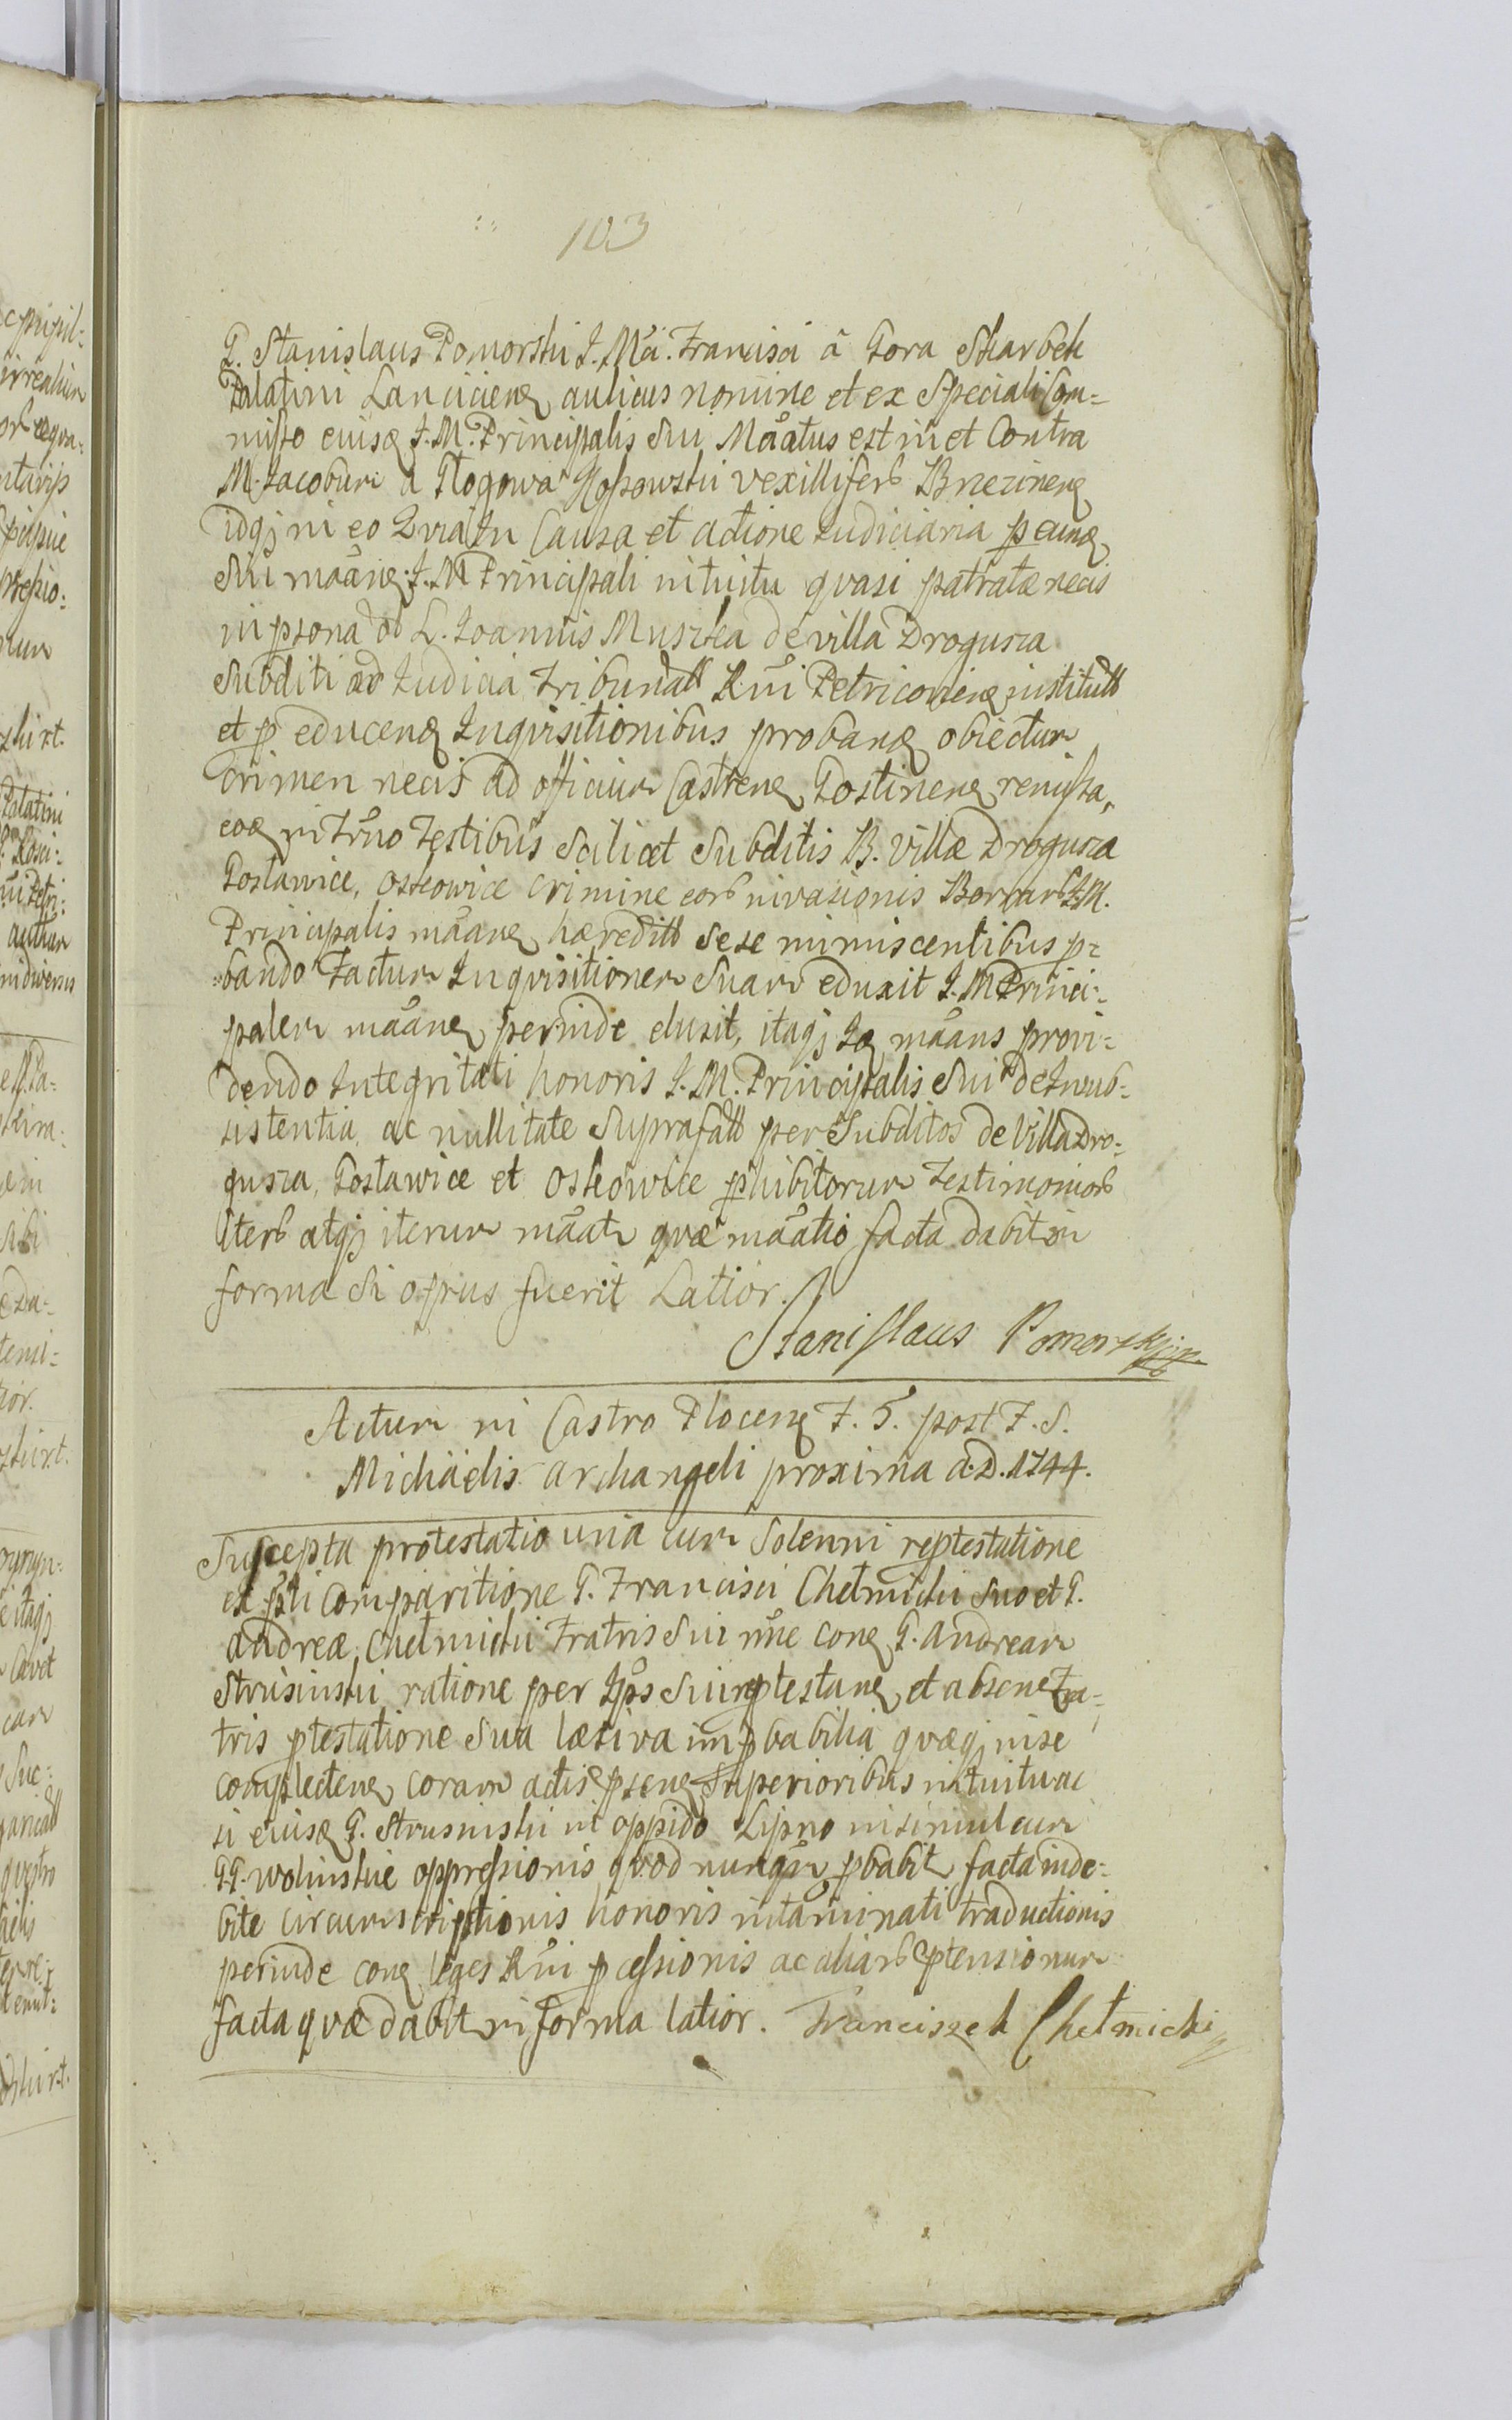 103
G. Stanislaus Pomorski J. Mci. Francisci â Gora Skarbek
Palatini Lancicienę aulicus nomine et ex Speciali Com=
misso eiusę J. M. Principalis Sui Mãatus est in et Contra
M. Jacobum a Głogowa Kossowski Vexilliferb Brezinenę
idqj in eo Quia In Causa et actione Judiciaria p eunę
Sui mãanę J. M Principali intuitu quasi patratæ necis
in psona ol L. Joannis Muszka de villa Drogusza
Subditi ad Judicia Tribunall Rñi Petricovienę institutt
et p educenę Inqvisitionibus probanę obiectum
Crimen necis ad officium Castrenę Gostinenę remissa,
eoę in Trño Testibus Scilicet Subditis B. Villæ Drogusza
Goslawice, Oskowice crimine eorb invasionis Bonorb J.M.
Principalis mãanę hæreditt sese immiscentibus p=
=bando Factum Inqvisitionem Suam eduxit J. M Princi=
palem mãanę perinde elusit, itaqj Ię mãans provi=
dendo Integritati honoris J. M. Principalis Sui de Insub=
sistentia ac nullitate Suprafatt per Subditos de Villa Dro=
gusza, Goslawice et Oskowice phibitorum Testimoniorb
Iterb atqj iterum mãatr quæ mãatio facta dabitr in
forma Si opus fuerit Latior.
Stanislaus Pomorski mp
Actum in Castro Plocenę F. 5. post F. S.
Michäelis archangeli proxima A. D. 1744.
Suscepta protestatio una cum Solenni reptestatione
ex psti Comparitione G. Francisci Chełmicki Suo et G.
Andreæ Chełmicki Fratris Sui nñe conę G. Andream
Strusinski ratione per Ipõs Sui reptestanę et absenę Fra=
tris ptestatione Sua læsiva impbabilia quæqj in se
complectenę coram actis psenę Superioribus intuitu ac
si eiusę G. Strusinski in oppido Lipno insimul cum
GG. Wolinskie oppressionis quod nunqm pbabit facta inde=
bite circumscriptionis honoris intaminati traductionis
perinde conę leges Rñi pcessionis ac aliarb ptensionum
facta quæ dabitr in forma latior. Franciszek Chełmicki